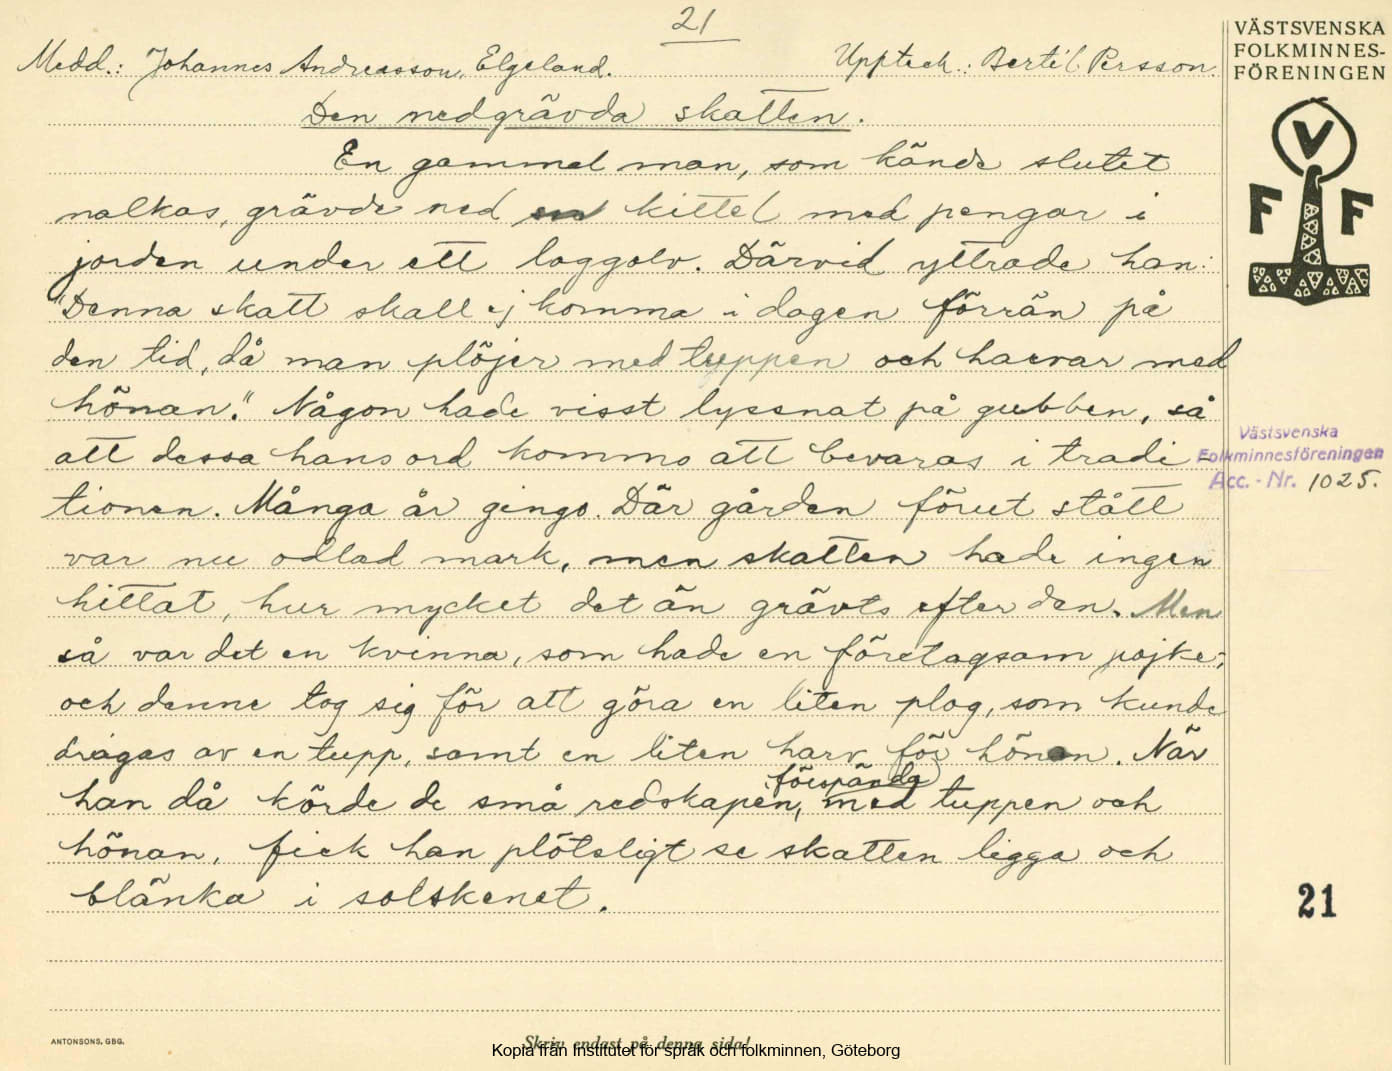 21
Medd.: Johannes Andreasson, Elgeland. Uppteck.: Bertil Persson.
Den nedgrävda skatten.
En gammal man, som kände slutet
nalkas, grävde ned en kittel med pengar i
jorden under ett loggolv. Därvid yttrade han:
"Denna skatt skall ej komma i dagen förrän på
den tid, då man plöjer med tuppen och harvar med
hönan." Någon hade visst lyssnat på gubben, så
att dessa hans ord kommo att bevaras i tradi-
tionen. Många år gingo. Där gården förut stått
var nu odlad mark, men skatten hade ingen
hittat, hur mycket det än grävts efter den. Men
så var det en kvinna, som hade en företagsam pojke,
och denne tog sig för att göra en liten plog, som kunde
dragas av en tupp, samt en liten harv för hönan. När
förspända
han då körde de små redskapen, med tuppen och
hönan, fick han plötsligt se skatten ligga och
blänka i solskenet.
VÄSTSVENSKA
FOLKMINNES-
FÖRENINGEN
V
F F
Västsvenska
Folkminnesföreningen
Acc.-Nr. 1025.
21
ANTONSONS, GBG.
Skriv endast på denna sida!
Kopia från Institutet för språk och folkminnen, Göteborg